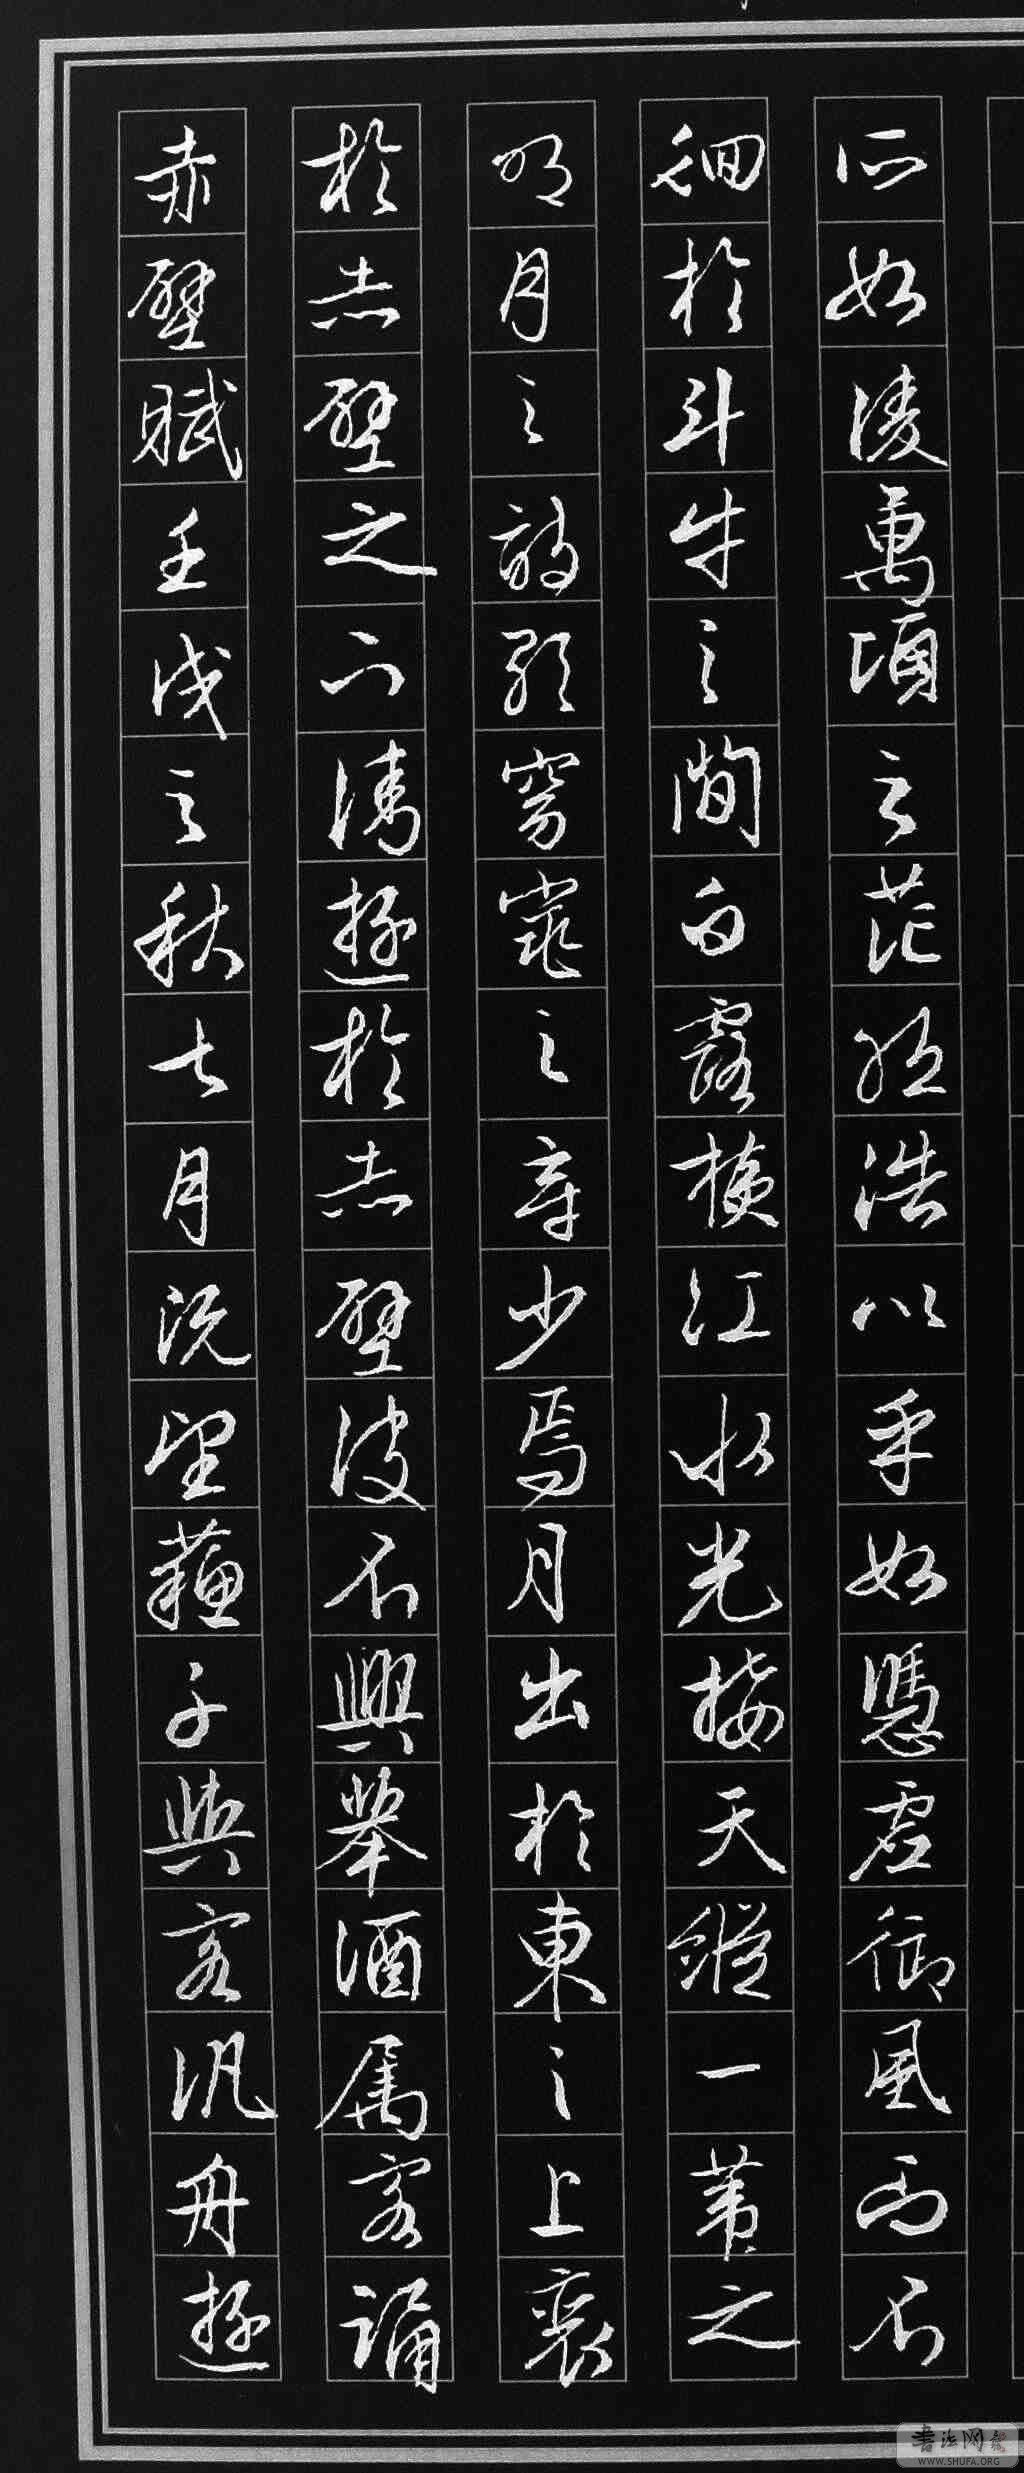 赤壁賦壬戌之秋七月既望蘇子與客汎舟遊
於赤壁之下清遊於赤壁波不興舉酒属客誦
明月之詩歌窈窕之章少焉月出於東之上裵
徊於斗牛之間白露横江水光接天縱一葦之
所如凌萬頃之茫然浩以乎如憑虚御風而不
書法网
WWW.SHUFA.ORG